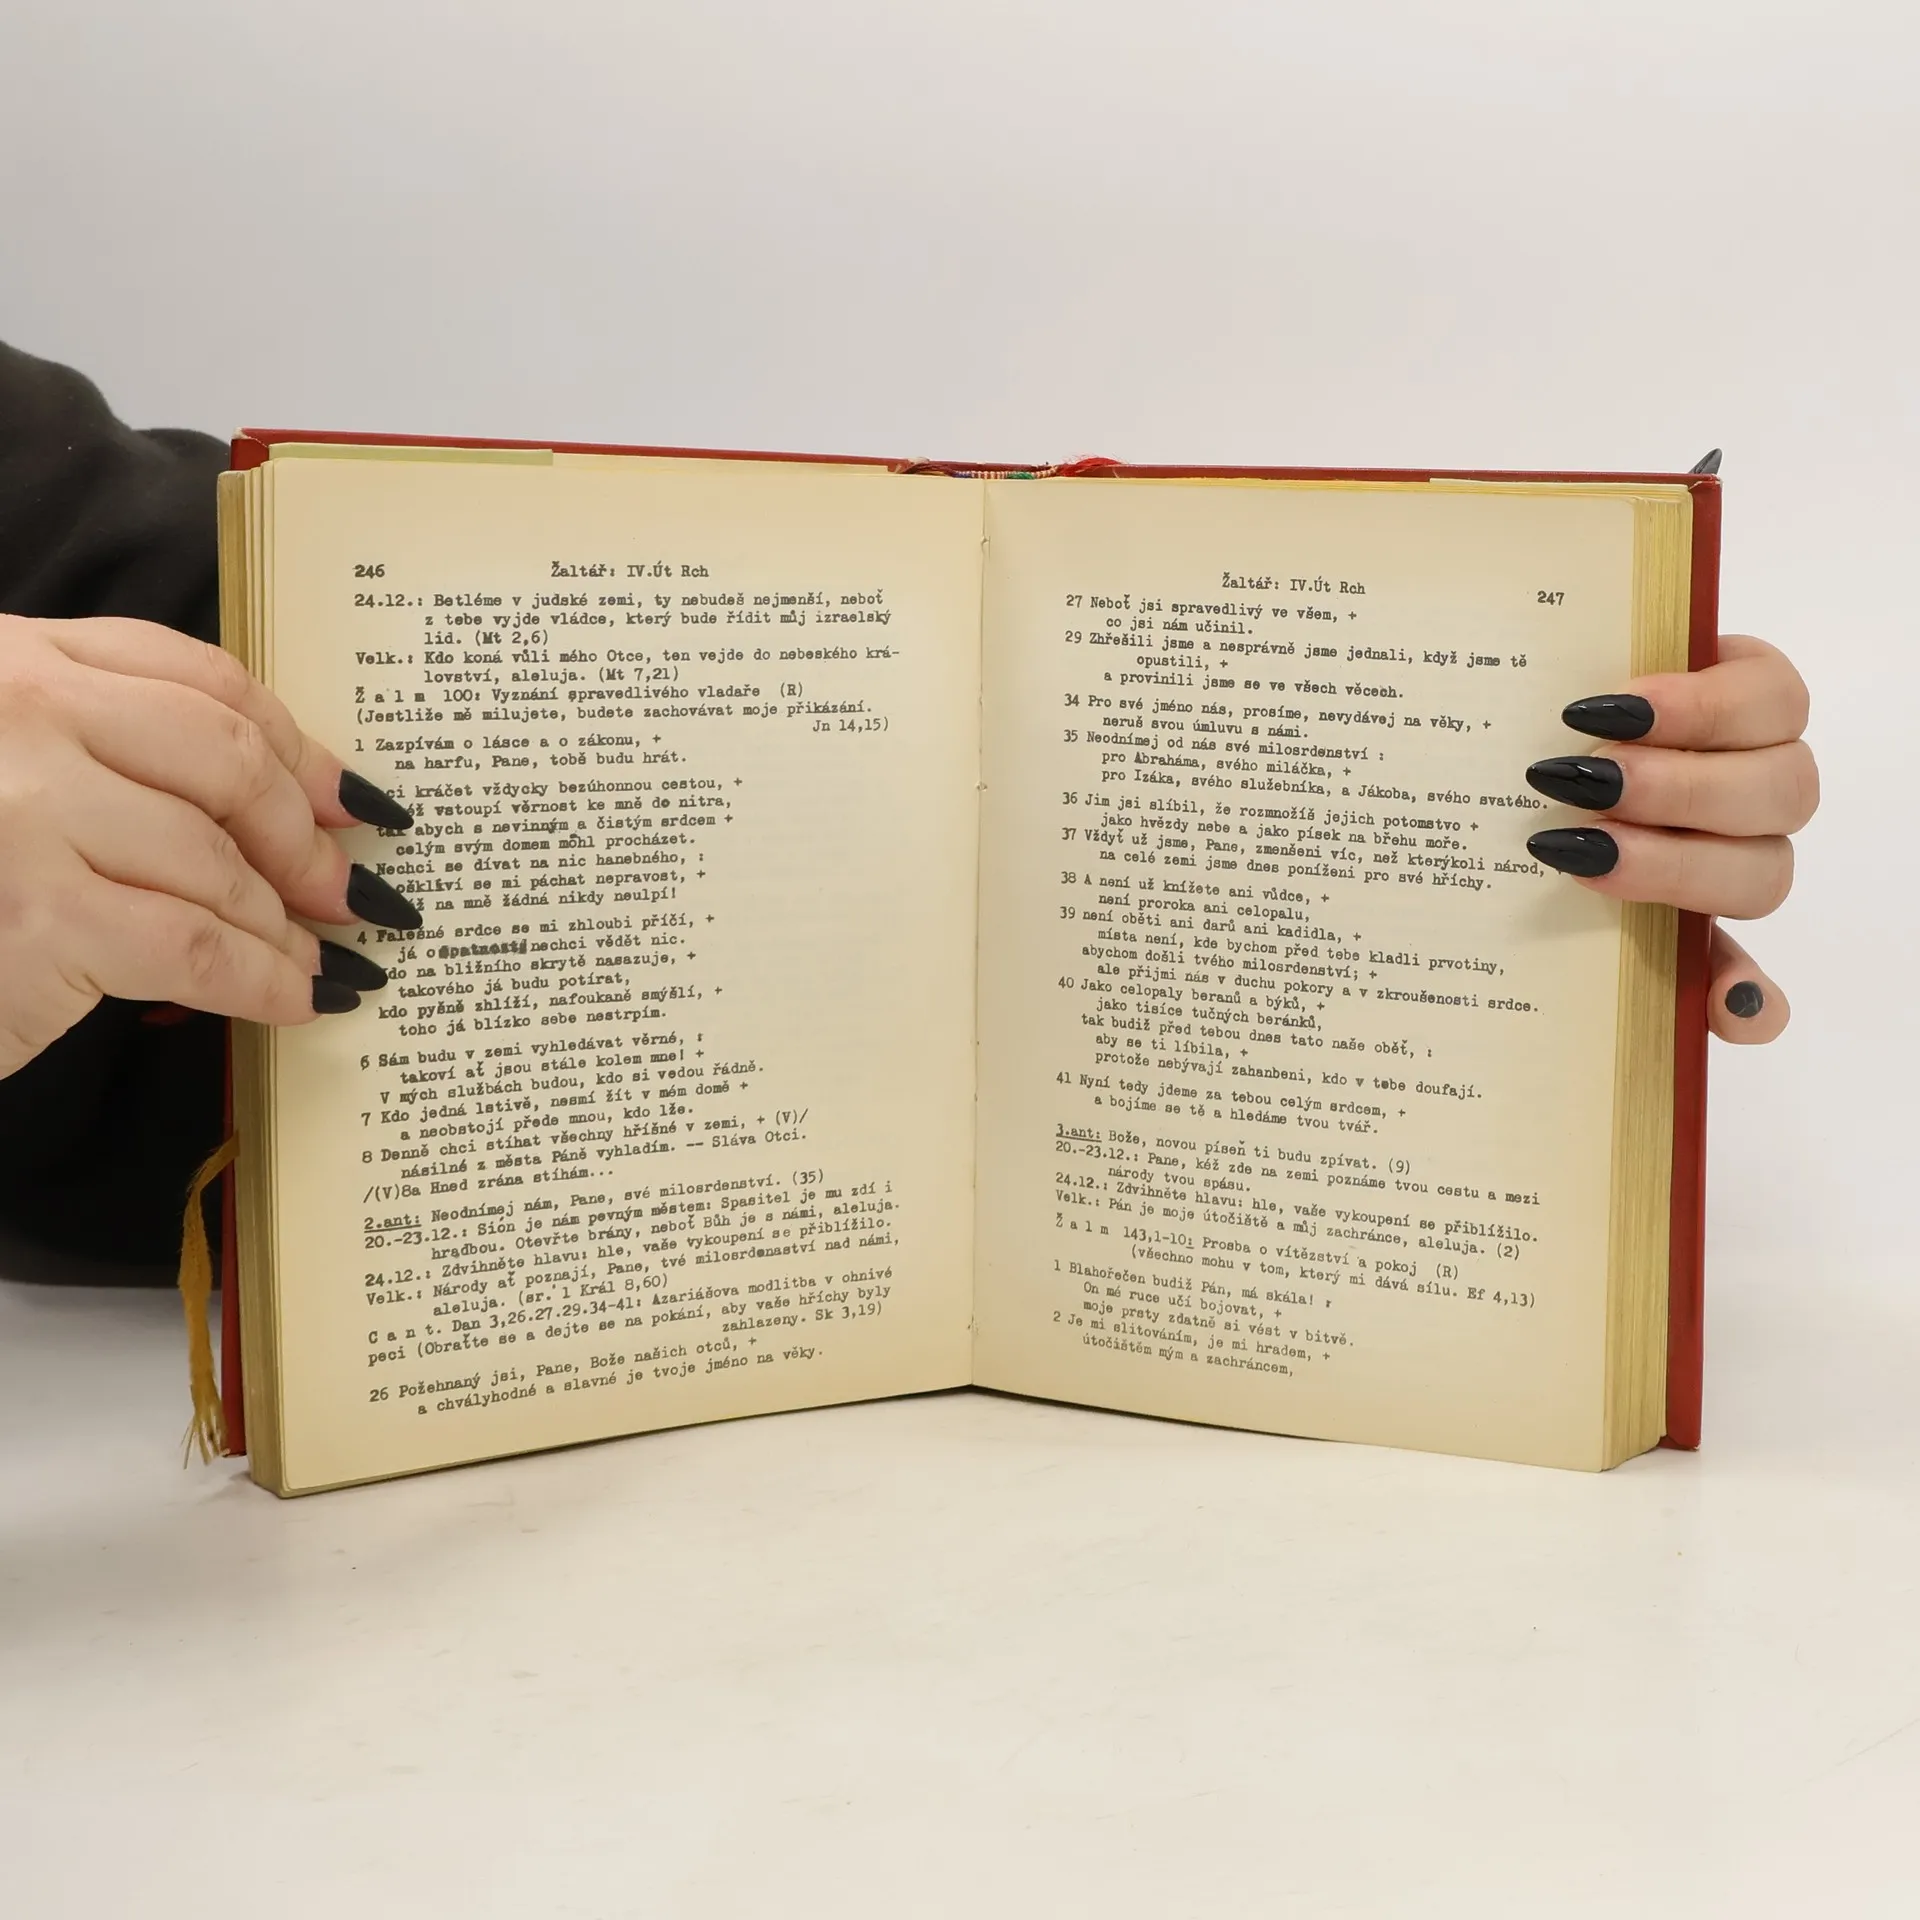 246 Žaltář: IV.Út Rch
24.12.: Betléme v judské zemi, ty nebudeš nejmenší, neboť
z tebe vyjde vládce, který bude řídit můj izraelský
lid. (Mt 2,6)
Velk.: Kdo koná vůli mého Otce, ten vejde do nebeského krá-
lovství, aleluja. (Mt 7,21)
Ž a l m 100: Vyznání spravedlivého vladaře (R)
(Jestliže mě milujete, budete zachovávat moje přikázání.
Jn 14,15)
1 Zazpívám o lásce a o zákonu, +
na harfu, Pane, tobě budu hrát.
kráčet vždycky bezúhonnou cestou, +
vstoupí věrnost ke mně do nitra,
tak abych s nevinným a čistým srdcem +
celým svým domem mohl procházet.
Nechci se dívat na nic hanebného, :
oškliví se mi páchat nepravost, +
na mně žádná nikdy neulpí!
4 Falešné srdce se mi zhloubi příčí, +
já o špatnosti nechci vědět nic.
Kdo na bližního skrytě nasazuje, +
takového já budu potírat,
kdo pyšně zhlíží, nafoukaně smýšlí, +
toho já blízko sebe nestrpím.
6 Sám budu v zemi vyhledávat věrné, :
takoví ať jsou stále kolem mne! +
V mých službách budou, kdo si vedou řádně.
7 Kdo jedná lstivě, nesmí žít v mém domě +
a neobstojí přede mnou, kdo lže.
8 Denně chci stíhat všechny hříšné v zemi, + (V)/
násilné z města Páně vyhladím. -- Sláva Otci.
/(V)8a Hned zrána stíhám...
2.ant: Neodnímej nám, Pane, své milosrdenství. (35)
20.-23.12.: Sión je nám pevným městem: Spasitel je mu zdí i
hradbou. Otevřte brány, neboť Bůh je s námi, aleluja.
24.12.: Zdvihněte hlavu: hle, vaše vykoupení se přiblížilo.
Velk.: Národy ať poznají, Pane, tvé milosrdenaství nad námi,
aleluja. (sr. 1 Král 8,60)
C a n t. Dan 3,26.27.29.34-41: Azariášova modlitba v ohnivé
peci (Obraťte se a dejte se na pokání, aby vaše hříchy byly
zahlazeny. Sk 3,19)
26 Požehnaný jsi, Pane, Bože našich otců, +
a chvályhodné a slavné je tvoje jméno na věky.
Žaltář: IV.Út Rch 247
27 Neboť jsi spravedlivý ve všem, +
co jsi nám učinil.
29 Zhřešili jsme a nesprávně jsme jednali, když jsme tě
opustili, +
a provinili jsme se ve všech věcech.
34 Pro své jméno nás, prosíme, nevydávej na věky, +
neruš svou úmluvu s námi.
35 Neodnímej od nás své milosrdenství :
pro Abraháma, svého miláčka, +
pro Izáka, svého služebníka, a Jákoba, svého svatého.
36 Jim jsi slíbil, že rozmnožíš jejich potomstvo +
jako hvězdy nebe a jako písek na břehu moře.
37 Vždyť už jsme, Pane, zmenšeni víc, než kterýkoli národ,
na celé zemi jsme dnes poníženi pro své hříchy.
38 A není už knížete ani vůdce, +
není proroka ani celopalu,
39 není oběti ani darů ani kadidla, +
místa není, kde bychom před tebe kladli prvotiny,
abychom došli tvého milosrdenství; +
ale přijmi nás v duchu pokory a v zkroušenosti srdce.
40 Jako celopaly beranů a býků, +
jako tisíce tučných beránků,
tak budiž před tebou dnes tato naše oběť, :
aby se ti líbila, +
protože nebývají zahanbeni, kdo v tebe doufají.
41 Nyní tedy jdeme za tebou celým srdcem, +
a bojíme se tě a hledáme tvou tvář.
3.ant: Bože, novou píseň ti budu zpívat. (9)
20.-23.12.: Pane, kéž zde na zemi poznáme tvou cestu a mezi
národy tvou spásu.
24.12.: Zdvihněte hlavu: hle, vaše vykoupení se přiblížilo.
Velk.: Pán je moje útočiště a můj zachránce, aleluja. (2)
Ž a l m 143,1-10: Prosba o vítězství a pokoj (R)
(všechno mohu v tom, který mi dává sílu. Ef 4,13)
1 Blahořečen budiž Pán, má skála! :
On mé ruce učí bojovat, +
moje prsty zdatně si vést v bitvě.
2 Je mi slitováním, je mi hradem, +
útočištěm mým a zachráncem,